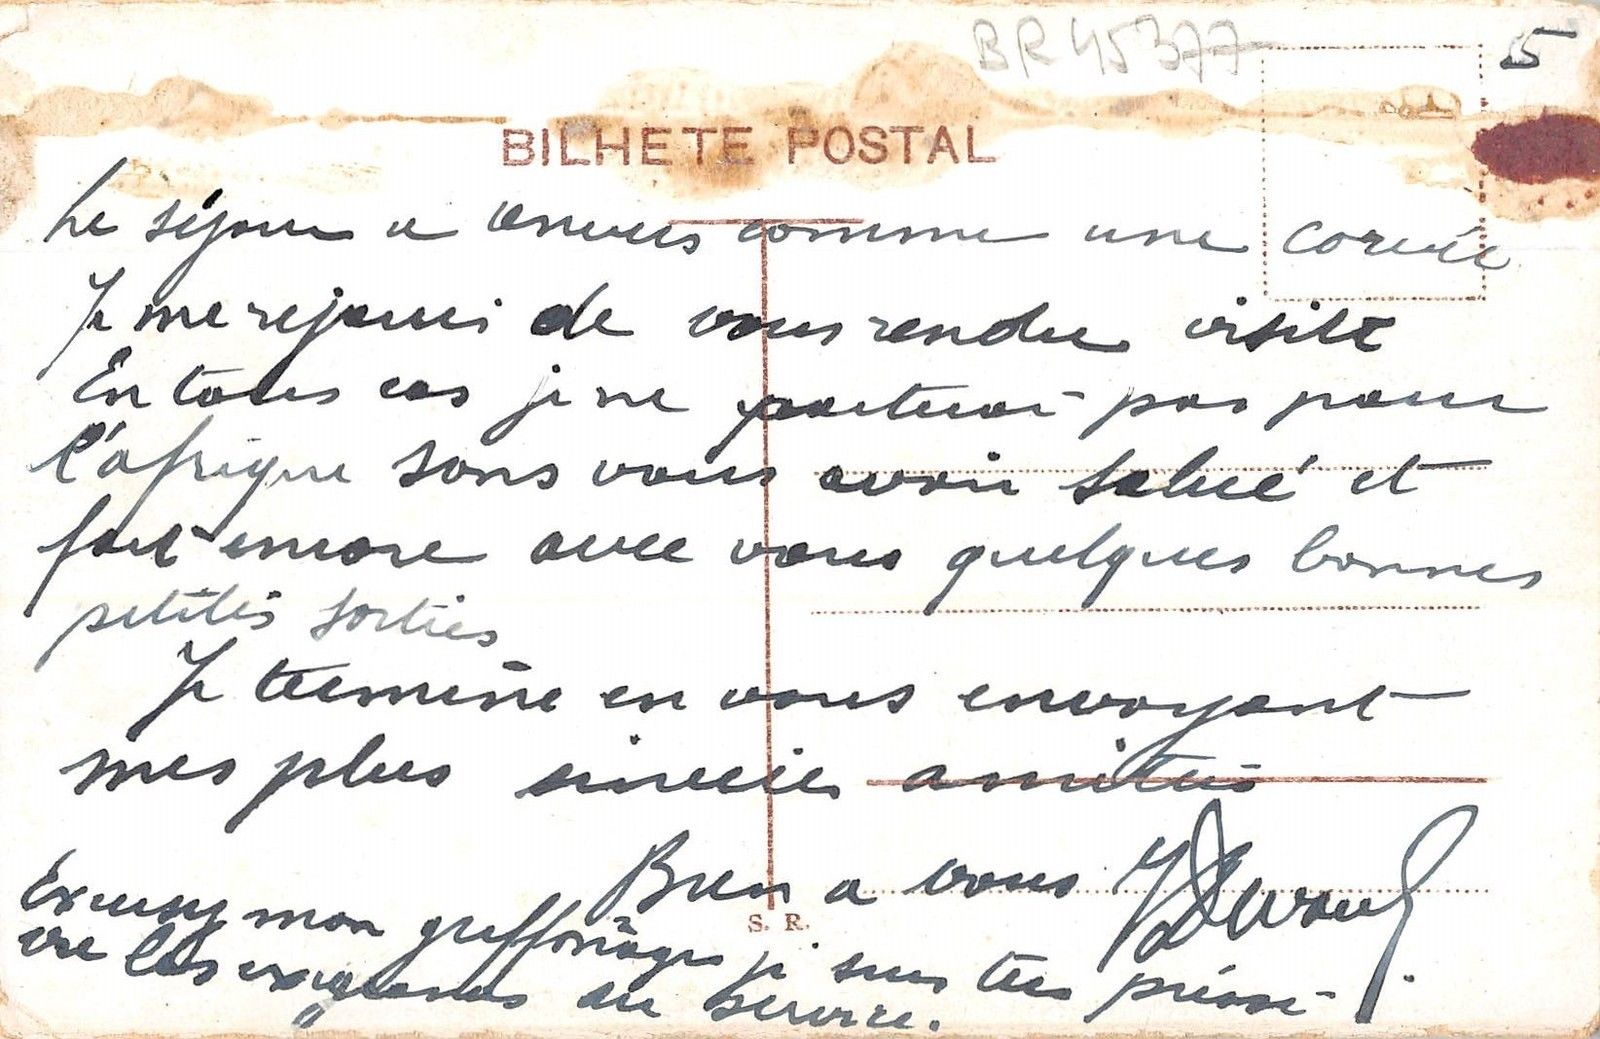 BR 45377
5
BILHETE POSTAL
Le séjour a anvers comme une corvée
Je me rejouis de vous rendre visite
En tous cas je ne partirai pas pour
l'afrique sans vous avoir salué et
fait encore avec vous quelques bonnes
petites sorties
Je termine en vous envoyant
mes plus sincères amitiés
Bien a vous
S. R.
Excusez mon griffonage je suis très pressé
vu les exigences du service.